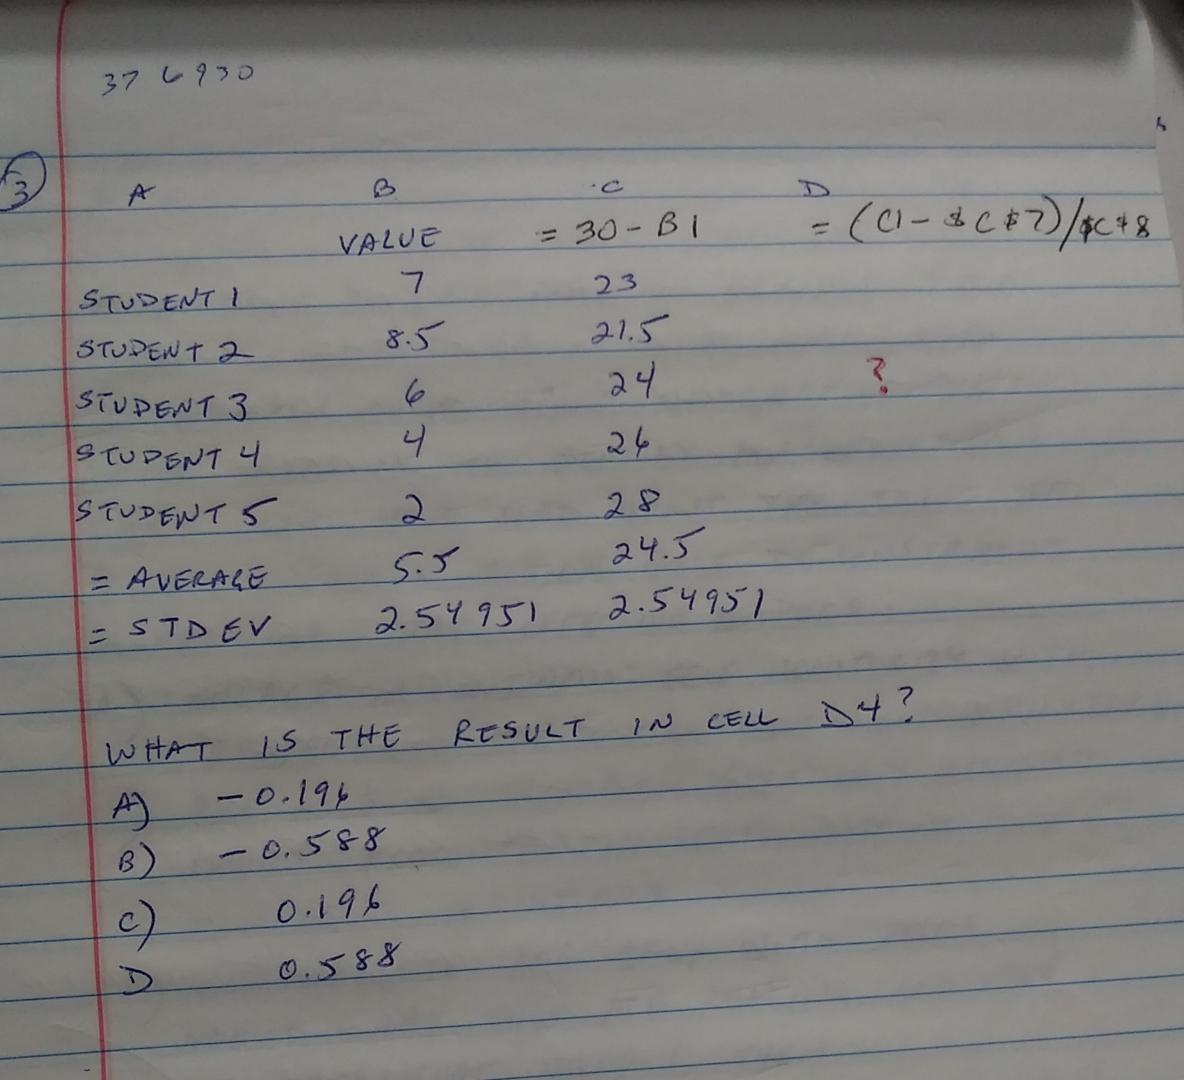 376930
3
A B C D
VALUE = 30 - B1 = (C1 - $C$7)/$C$8
STUDENT 1 7 23
STUDENT 2 8.5 21.5
STUDENT 3 6 24 ?
STUDENT 4 4 26
STUDENT 5 2 28
= AVERAGE 5.5 24.5
= STDEV 2.54951 2.54951
WHAT IS THE RESULT IN CELL D4?
A) -0.196
B) -0.588
C) 0.196
D 0.588